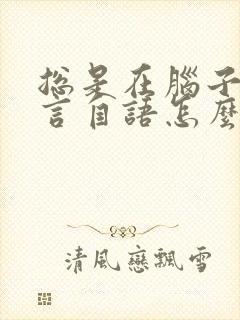 總是在腦子
言自語怎麼
清風戀飄雪